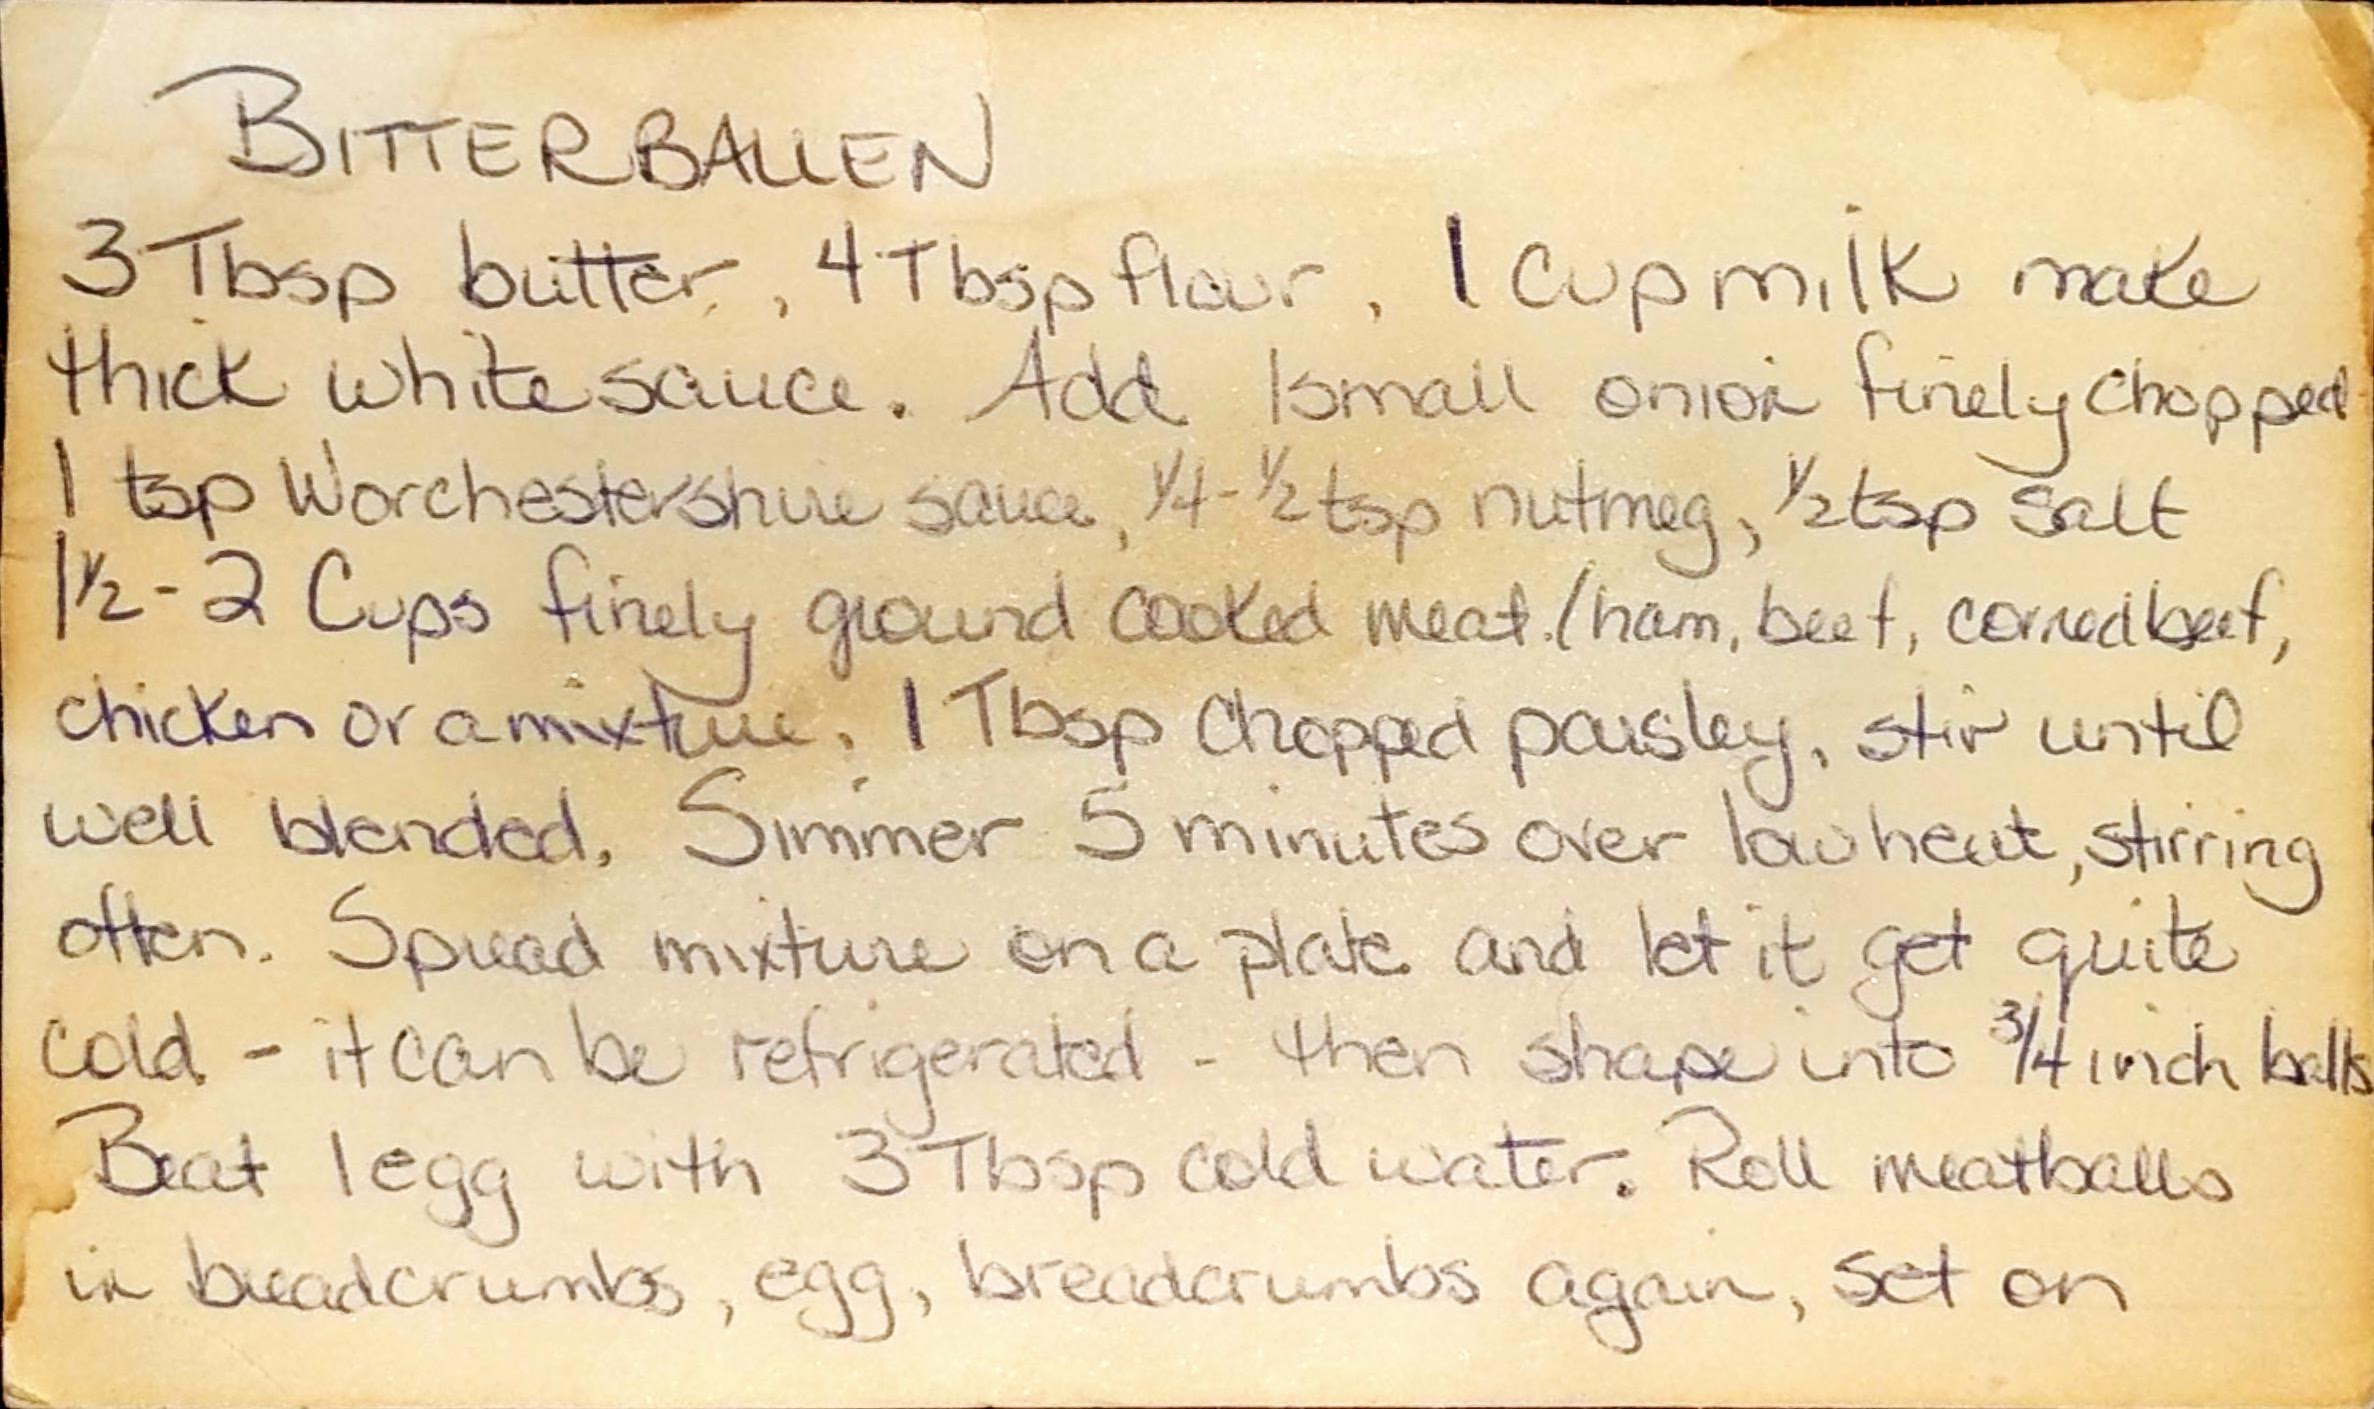 BITTERBALLEN
3 Tbsp butter, 4 Tbsp flour, 1 Cup milk make
thick white sauce. Add 1 small onion finely chopped
1 tsp Worchestershire sauce, 1/4 - 1/2 tsp nutmeg, 1/2 tsp salt
1 1/2 - 2 Cups finely ground cooked meat. (ham, beef, corned beef,
chicken or a mixture, 1 Tbsp chopped parsley, stir until
well blended. Simmer 5 minutes over low heat, stirring
often. Spread mixture on a plate and let it get quite
cold - it can be refrigerated - then shape into 3/4 inch balls
Beat 1 egg with 3 Tbsp cold water. Roll meatballs
in breadcrumbs, egg, breadcrumbs again, set on